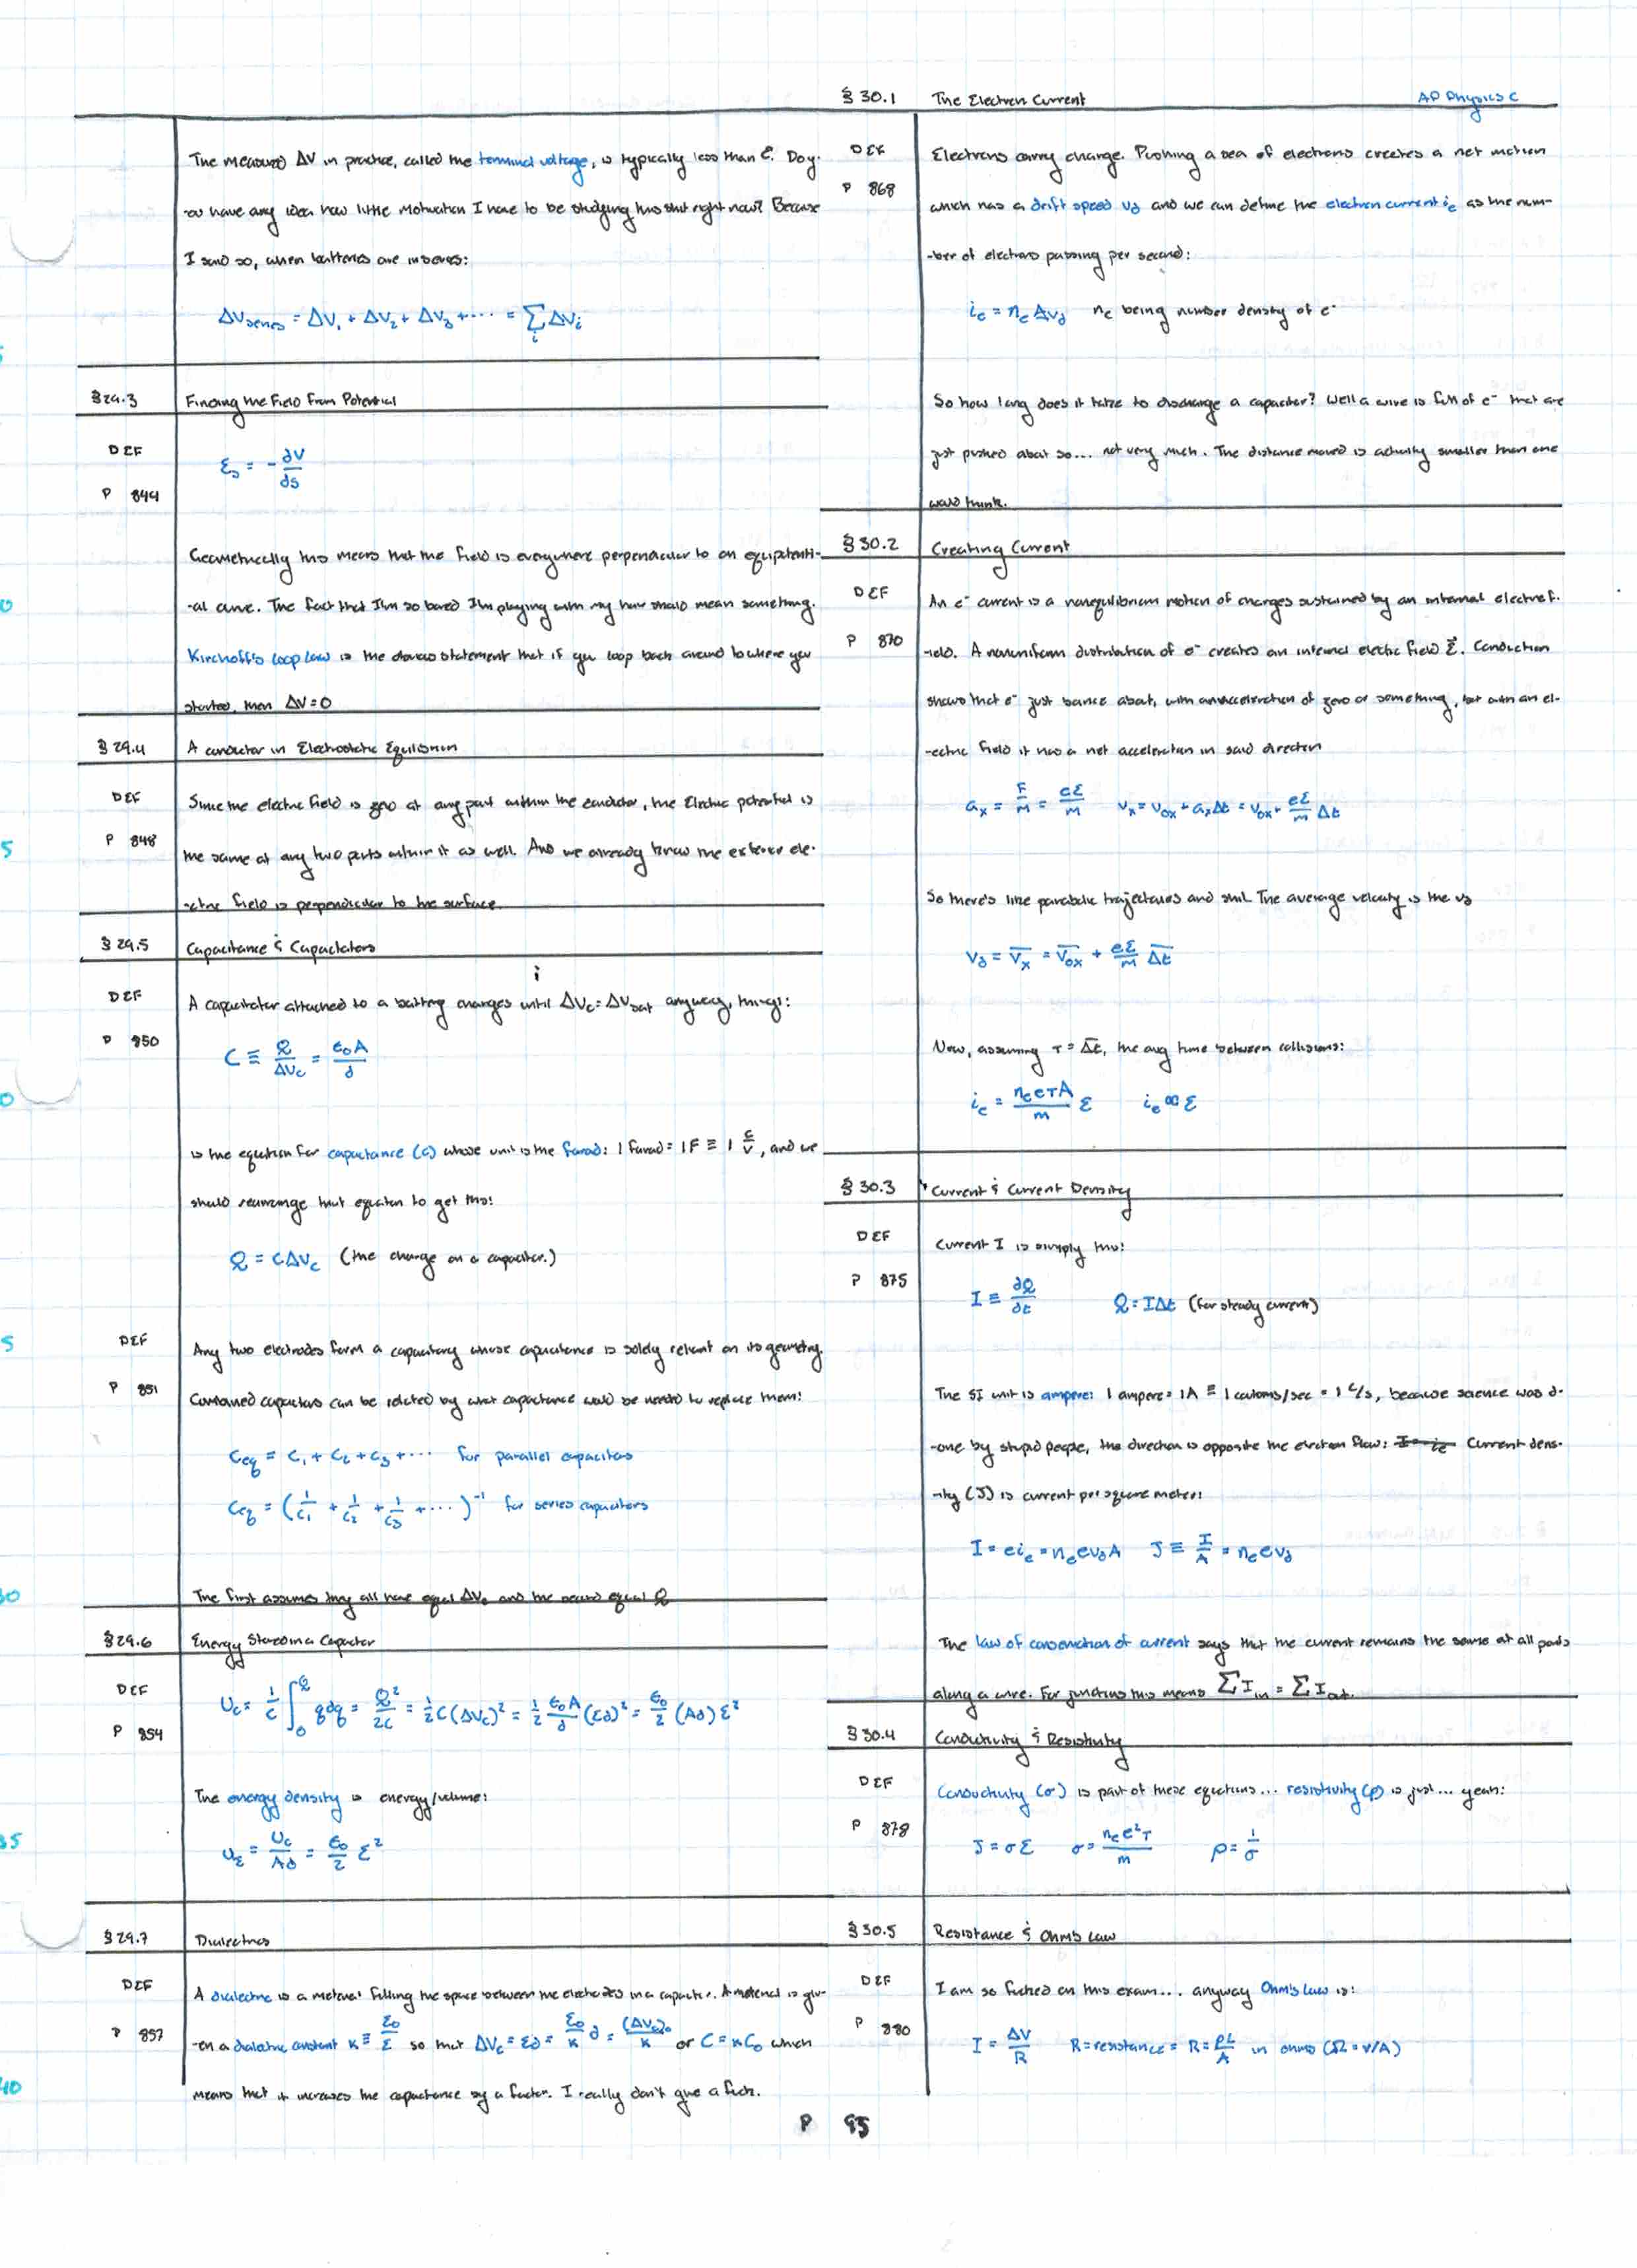 The measured ΔV in practice, called the terminal voltage, is typically less than ℰ. Do y-
-ou have any idea how little motivation I have to be studying this shit right now? Because
I said so, when batteries are in series:
ΔVseries = ΔV₁ + ΔV₂ + ΔV₃ + ⋯ = ∑ᵢ ΔVᵢ
§ 29.3 Finding the Field From Potential
DEF
P 844
ℰs = - ∂V/∂s
Geometrically this means that the field is everywhere perpendicular to an equipotenti-
-al curve. The fact that I'm so bored I'm playing with my hair should mean something.
Kirchoff's loop law is the obvious statement that if you loop back around to where you
started, then ΔV = 0
§ 29.4 A conductor in Electrostatic Equilibrium
DEF
P 848
Since the electric field is zero at any part within the conductor, the Electric potential is
the same at any two parts within it as well. And we already know the exterior ele-
-ctric field is perpendicular to the surface
§ 29.5 Capacitance & Capacitators
DEF
P 850
A capacitator attached to a battery charges until ΔVc = ΔVbat anyway, things:
C ≡ Q/ΔVc = ϵ₀A/d
is the equation for capacitance (C) whose unit is the farad: 1 farad = 1F ≡ 1 C/V, and we
should rearrange that equation to get this:
Q = CΔVc (the charge on a capacitor.)
DEF
P 851
Any two electrodes form a capacitory whose capacitance is solely reliant on its geometry.
Combined capacitors can be related by what capacitance would be needed to replace them:
Ceq = C₁ + C₂ + C₃ + ⋯ for parallel capacitors
Ceq = (1/C₁ + 1/C₂ + 1/C₃ + ⋯)⁻¹ for series capacitors
The first assumes they all have equal ΔVc and the second equal Q
§ 29.6 Energy Stored in a Capacitor
DEF
P 854
Uc = 1/C ∫₀^Q q dq = Q²/2C = ½C(ΔVc)² = ½ ϵ₀A/d (ℰd)² = ϵ₀/2 (Ad) ℰ²
The energy density is energy/volume:
uℰ = Uc/Ad = ϵ₀/2 ℰ²
§ 29.7 Dialectrics
DEF
P 857
A dialectric is a material filling the space between the electrodes in a capacitor. A material is giv-
-en a dialectric constant κ ≡ ℰ₀/ℰ so that ΔVc = ℰd = ℰ₀/κ d = (ΔVc)₀/κ or C = κC₀ which
means that it increases the capacitance by a factor. I really don't give a fuck.
§ 30.1 The Electron Current
AP Physics C
DEF
P 868
Electrons carry charge. Pushing a sea of electrons creates a net motion
which has a drift speed vd and we can define the electron current ie as the num-
-ber of electrons passing per second:
ie = ne A vd ne being number density of e⁻
So how long does it take to discharge a capacitor? Well a wire is full of e⁻ that are
just pushed about so... not very much. The distance moved is actually smaller than one
would think.
§ 30.2 Creating Current
DEF
P 870
An e⁻ current is a nonequilibrium motion of charges sustained by an internal electric f-
-ield. A nonuniform distribution of e⁻ creates an internal electric field ℰ⃗. Conduction
shows that e⁻ just bounce about, with an acceleration of zero or something, but with an el-
-ectric field it has a net acceleration in said direction
ax = F/m = eℰ/m vx = v₀x + axΔt = v₀x + eℰ/m Δt
So there's like parabolic trajectories and shit. The average velocity is the vd
vd = v̄x = v̄₀x + eℰ/m Δ̄t
Now, assuming τ = Δ̄t, the avg time between collisions:
ie = neeτA/m ℰ ie ∝ ℰ
§ 30.3 Current & Current Density
DEF
P 875
Current I is simply this:
I ≡ ∂Q/∂t Q = IΔt (for steady current)
The SI unit is ampere: 1 ampere = 1A ≡ 1 couloms/sec = 1 C/s, because science was d-
-one by stupid people, the direction is opposite the electron flow: I = ie Current dens-
-ity (J) is current per square meter:
I = eie = neevdA J ≡ I/A = neevd
The law of conservation of current says that the current remains the same at all parts
along a wire. For junctions this means ∑Iin = ∑Iout.
§ 30.4 Conductivity & Resistivity
DEF
P 878
Conductivity (σ) is part of these equations... resistivity (ρ) is just... yeah:
J = σℰ σ = nee²τ/m ρ = 1/σ
§ 30.5 Resistance & Ohm's Law
DEF
P 880
I am so fucked on this exam... anyway Ohm's law is:
I = ΔV/R R = resistance = R = ρL/A in ohms (Ω = V/A)
P 95